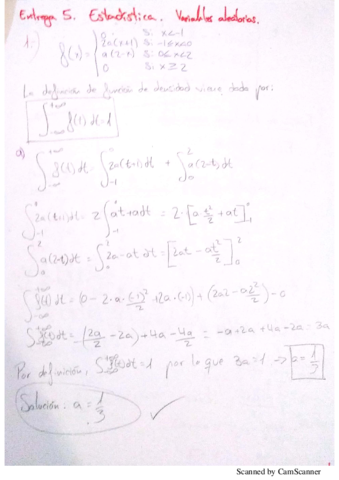 Entrega 5. Estadística. Variables aleatorias.
1.-
f(x) = { 0 si x<-1
2a(x+1) si -1≤x<0
a(2-x) si 0≤x<2
0 si x≥2
La definición de función de densidad viene dada por:
∫_{-∞}^{+∞} f(t) dt = 1
a) ∫_{-∞}^{+∞} f(t) dt = ∫_{-1}^{0} 2a(t+1) dt + ∫_{0}^{2} a(2-t) dt
∫_{-1}^{0} 2a(t+1) dt = 2∫_{-1} at+a dt = 2·[a t²/2 + at]_{-1}
∫_{0}^{2} a(2-t) dt = ∫_{0}^{2} 2a-at dt = [2at - at²/2]_{0}^{2}
∫_{-∞}^{+∞} f(t) dt = (0 - 2·a·(-1)²/2 + 2a·(-1)) + (2a2 - a2²/2) - 0
∫_{-∞}^{+∞} f(t) dt = -(2a/2 - 2a) + 4a - 4a/2 = -a+2a+4a-2a = 3a
Por definición, ∫_{-∞}^{+∞} f(t) dt = 1 por lo que 3a=1 → a = 1/3
Solución: a = 1/3 ✓
Scanned by CamScanner